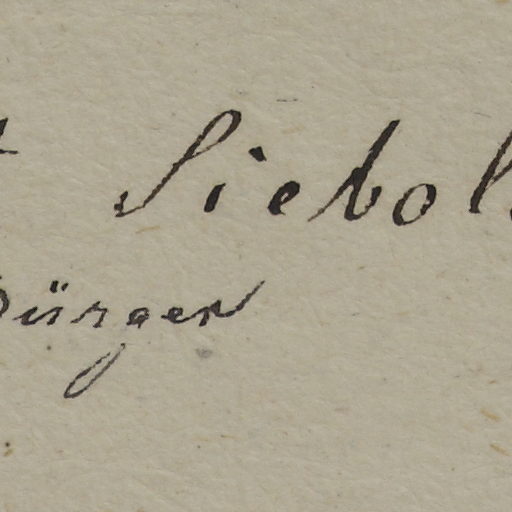 Siebol
Bürger